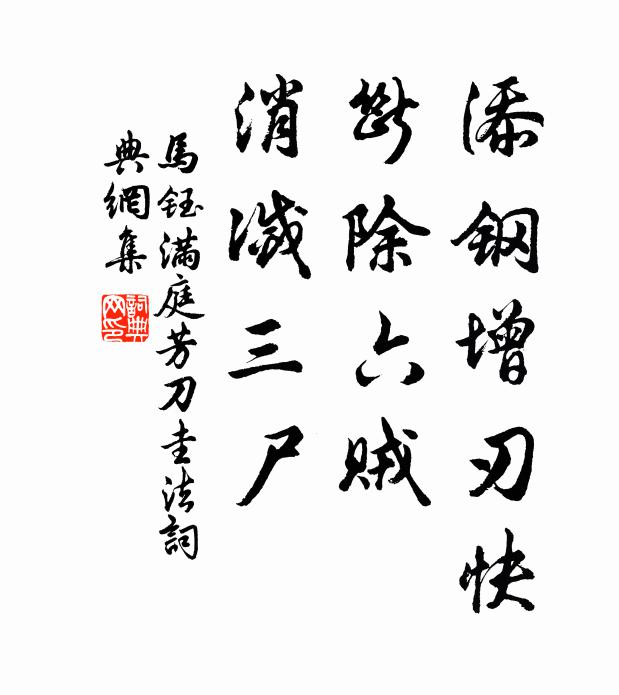 添鋼增刃快
斷除六賊
消滅三尸
馬鈺滿庭芳刀圭法詞
典網集
詞典网印